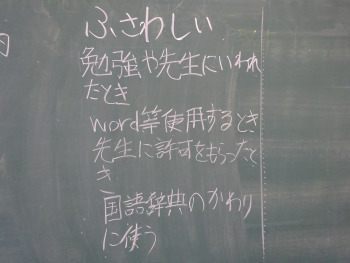 ふさわしい
勉強や先生にいわれ
たとき
word等使用するとき
先生に許可をもらったと
き
国語辞典のかわり
に使う